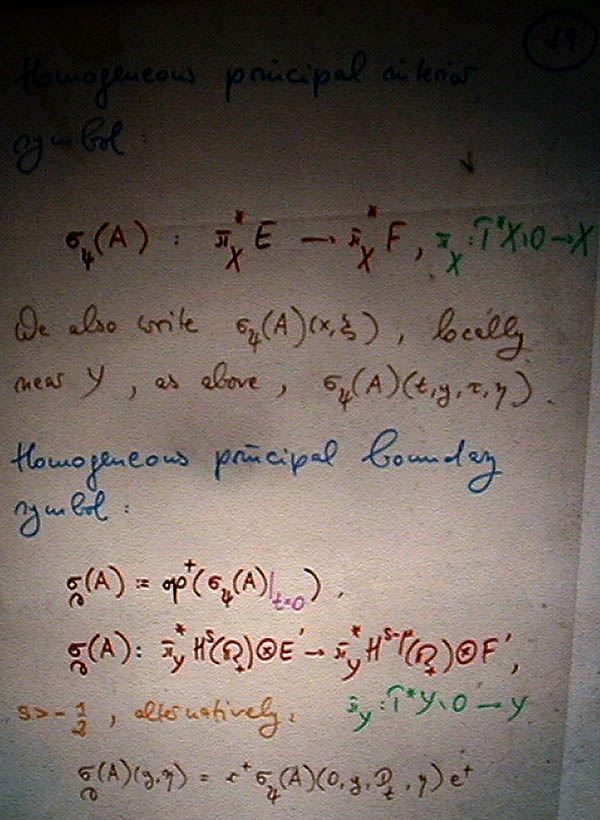 29
Homogeneous principal interior
symbol:
σ_ψ(A) : π_X^* E → π_X^* F, π_X : T^*X\0 → X
We also write σ_ψ(A)(x,ξ), locally
near Y, as above, σ_ψ(A)(t,y,τ,η).
Homogeneous principal boundary
symbol:
σ_∂(A) := op^+(σ_ψ(A)|_{t=0}),
σ_∂(A): π_Y^* H^s(ℝ_+)⊗E' → π_Y^* H^{s-μ}(ℝ_+)⊗F',
s>-1/2, alternatively, π_Y : T^*Y\0 → Y
σ_∂(A)(y,η) = r^+ σ_ψ(A)(0,y,D_t,η) e^+